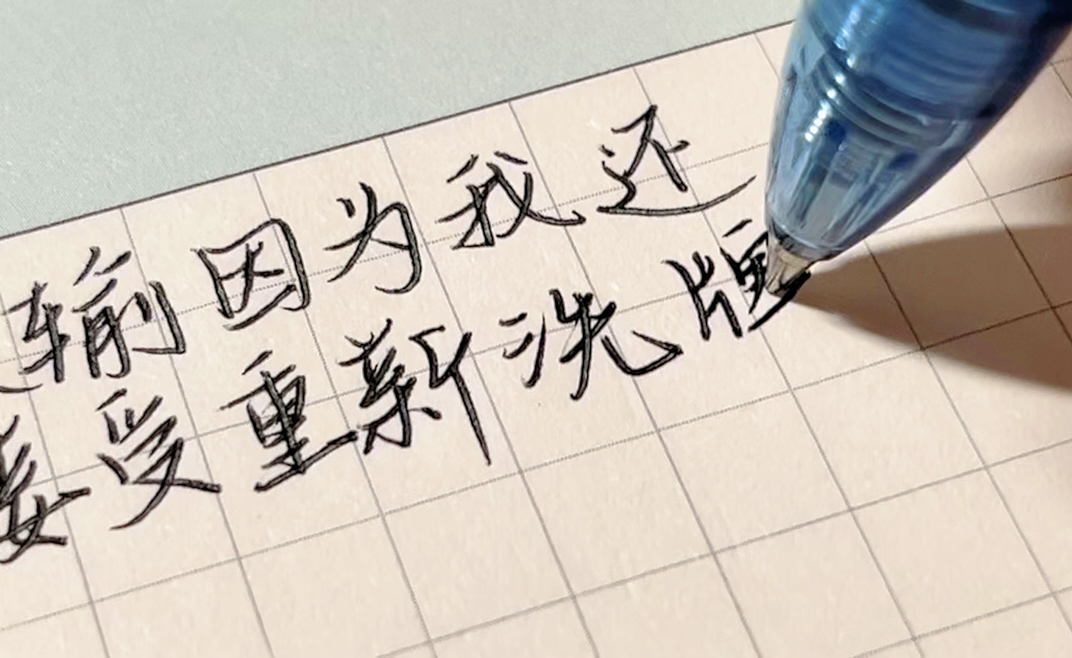 输因为我还
接受重新洗牌